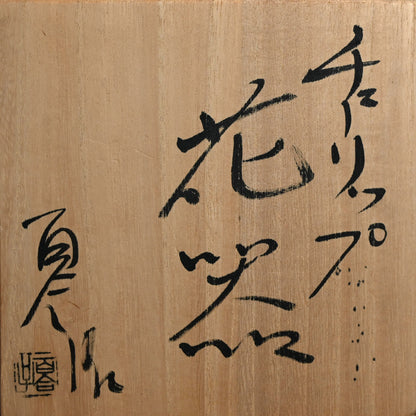 チューリップ
花器
夏作